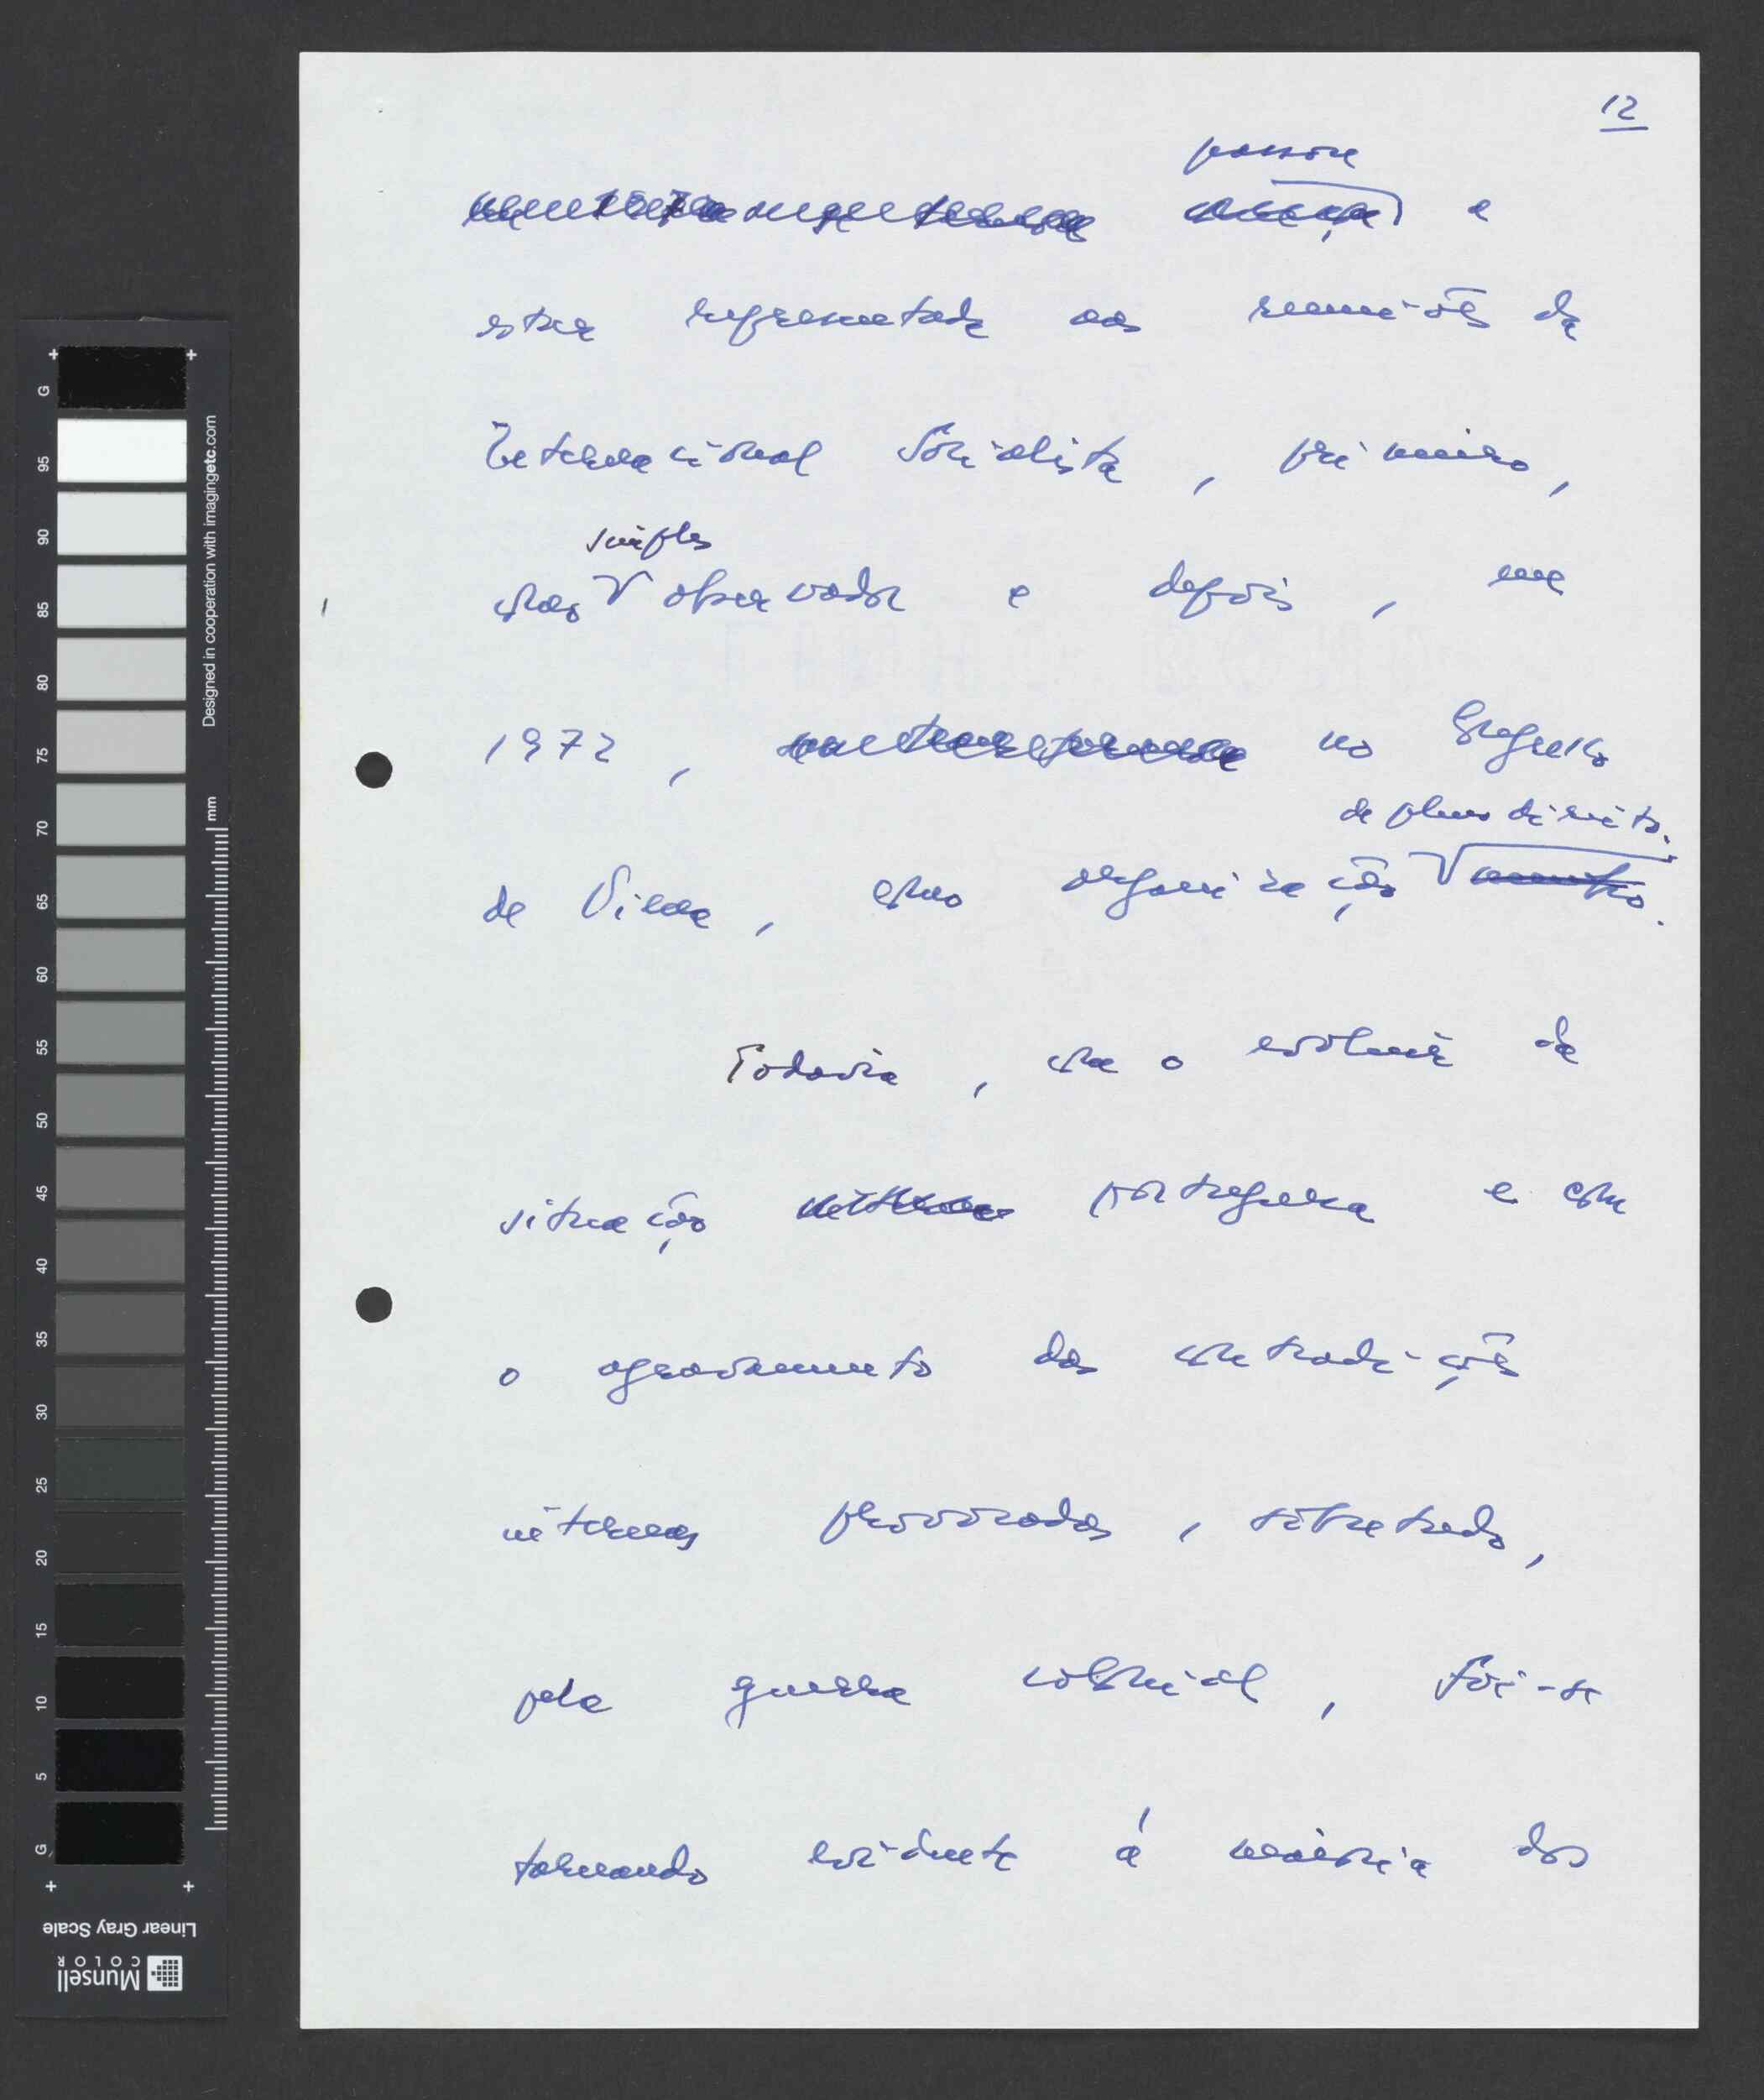 12
passou
a
estar representada nas reuniões da
Internacional Socialista, primeiro,
simples
como V observador e depois, em
1972, no Congresso
de pleno direito.
de Viena, como organização V membro.
Todavia, com a evolução da
situação portuguesa e com
o agravamento das contradições
internas provocadas, sobretudo,
pela guerra colonial, foi-se
tornando evidente à maioria dos
G 95 90 85 80 75 70 65 60 55 50 45 40 35 30 25 20 15 10 5 G
Designed in cooperation with imagingetc.com
mm
Linear Gray Scale
Munsell
COLOR